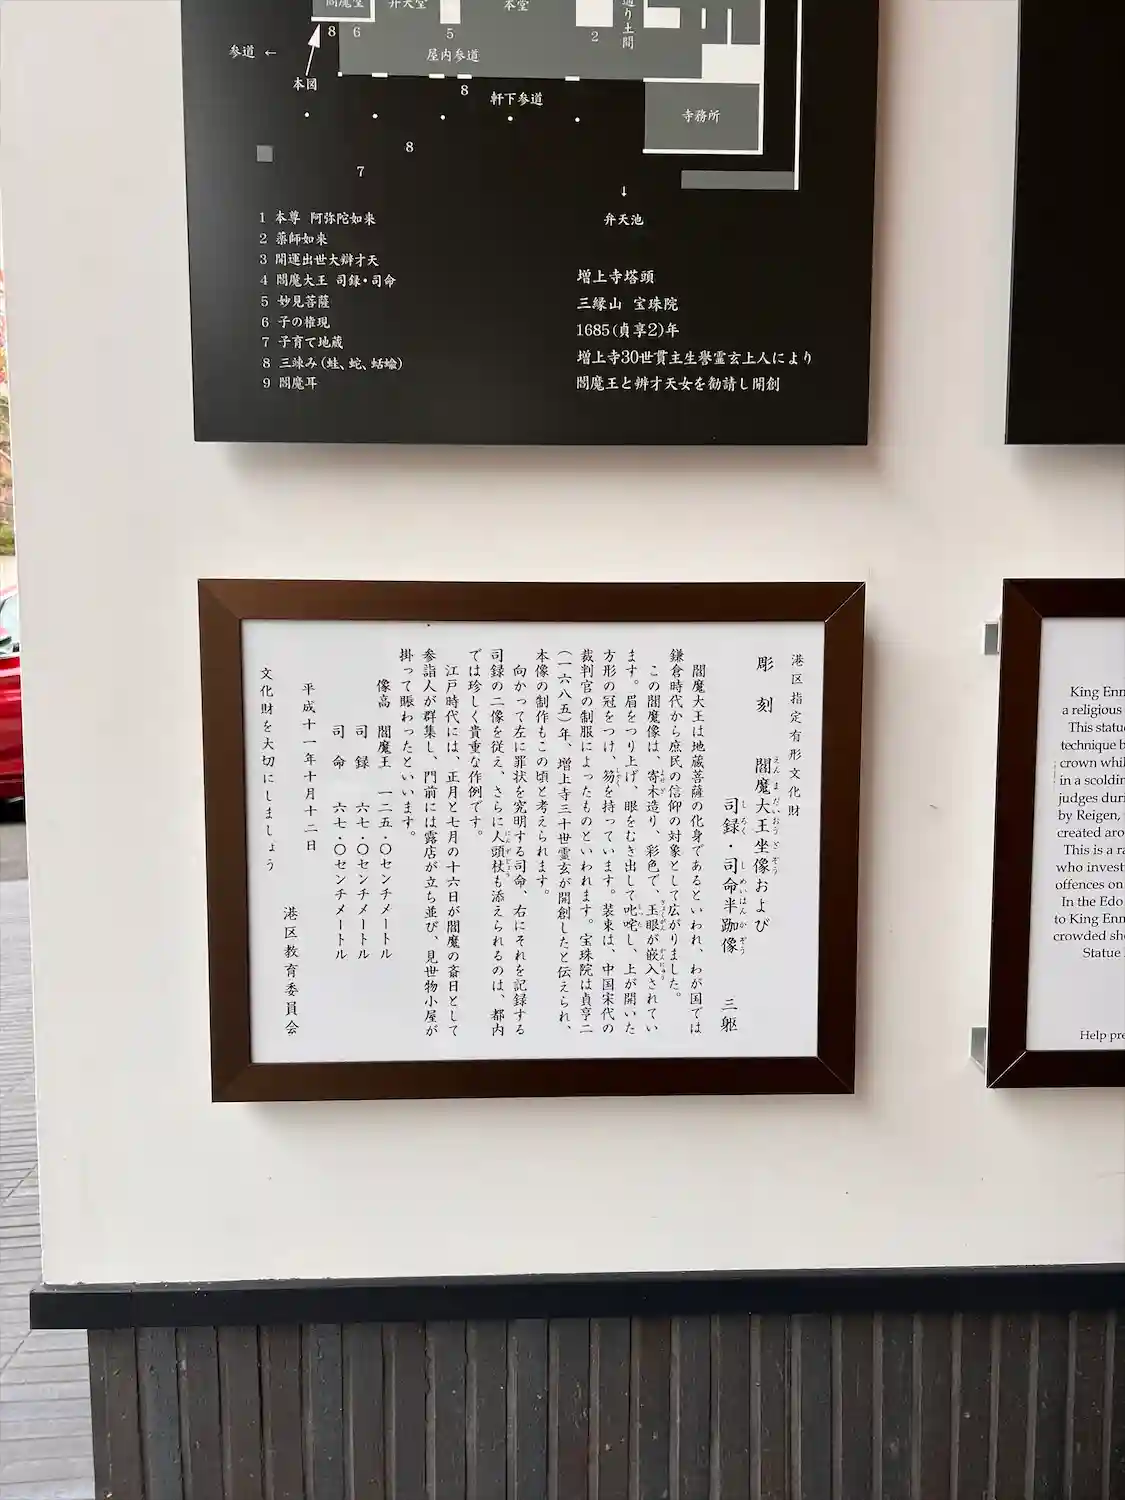 閻魔堂
弁天堂
本堂
通り土間
8
6
5
2
参道 ←
屋内参道
本図
8
軒下参道
寺務所
8
7
↓
弁天池
1 本尊 阿弥陀如来
2 薬師如来
3 開運出世大辯才天
4 閻魔大王 司録・司命
5 妙見菩薩
6 子の権現
7 子育て地蔵
8 三竦み(蛙、蛇、蛞蝓)
9 閻魔耳
増上寺塔頭
三縁山 宝珠院
1685(貞享2)年
増上寺30世貫主生譽霊玄上人により
閻魔王と辨才天女を勧請し開創
港区指定有形文化財
彫刻 閻魔大王坐像および
えんまだいおうざぞう
司録・司命半跏像 三躯
しろく しめいはんかぞう
閻魔大王は地蔵菩薩の化身であるといわれ、わが国では
鎌倉時代から庶民の信仰の対象として広がりました。
この閻魔像は、寄木造り、彩色で、玉眼が嵌入されてい
よせぎ ぎょくがん かんにゅう
ます。眉をつり上げ、眼をむき出して叱咤し、上が開いた
しった
方形の冠をつけ、笏を持っています。装束は、中国宋代の
しゃく
裁判官の制服によったものといわれます。宝珠院は貞享二
(一六八五)年、増上寺三十世霊玄が開創したと伝えられ、
本像の制作もこの頃と考えられます。
向かって左に罪状を究明する司命、右にそれを記録する
司録の二像を従え、さらに人頭杖も添えられるのは、都内
にんずじょう
では珍しく貴重な作例です。
江戸時代には、正月と七月の十六日が閻魔の斎日として
参詣人が群集し、門前には露店が立ち並び、見世物小屋が
掛って賑わったといいます。
像高 閻魔王 一二五・〇センチメートル
司録 六七・〇センチメートル
司命 六七・〇センチメートル
平成十一年十月十二日
港区教育委員会
文化財を大切にしましょう
King Enm
a religious
This statue
technique b
crown whil
in a scoldin
judges duri
by Reigen,
created aro
This is a ra
who invest
offences on
In the Edo
to King Enm
crowded sho
Statue
Help pre